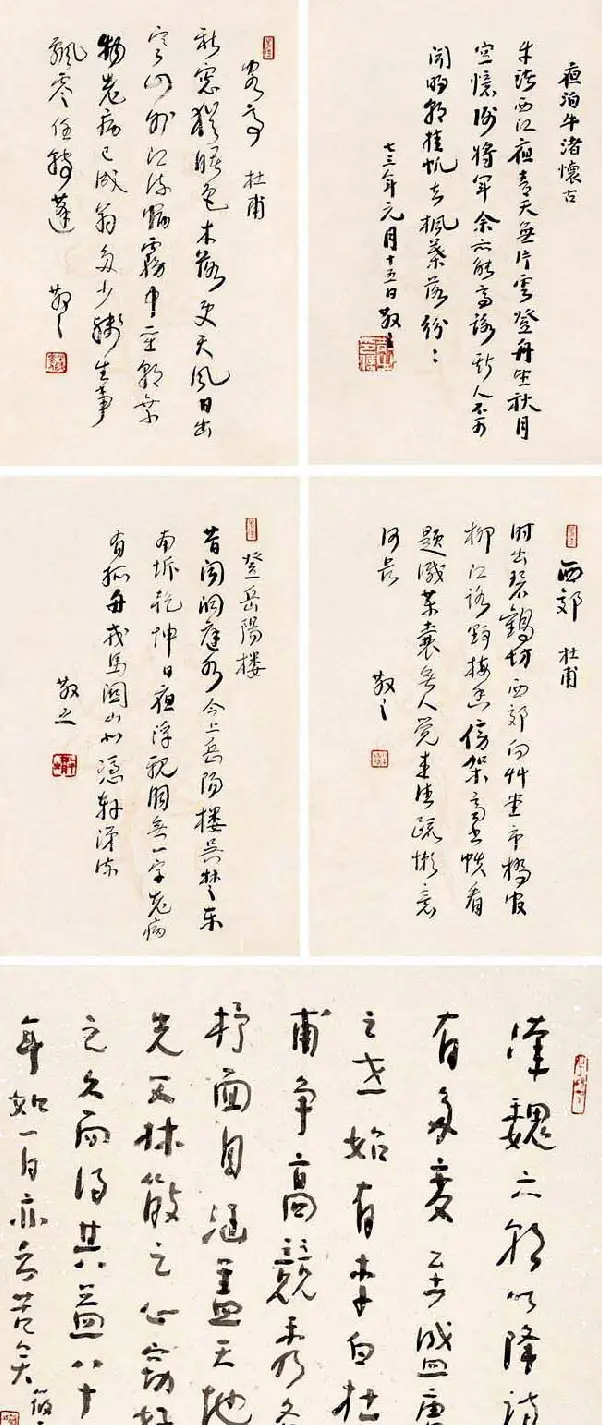 夜泊牛渚懷古
牛渚西江夜青天無片雲登舟望秋月
空憶谢將軍余亦能高詠斯人不可
聞明朝挂帆去楓葉落纷:
七三年元月十五日散之
客亭 杜甫
秋窓猶曙色木落更天風日出
寒山外江流宿霧中聖朝無棄
物老病已成翁多少殘生事
飄零任轉蓬
散之
西郊 杜甫
时出碧鷄坊西郊向艸堂市橋官
柳江路野梅香傍架齊書帙看
題減藥囊無人覺来往疏懒意
何长
散之
登岳陽楼
昔闻洞庭水今上岳陽楼吴楚东
南坼乾坤日夜浮親朋無一字老病
有孤舟戎馬関山北憑軒涕流
散之
漢魏六朝以降詩
有多变至盛唐
之世始有李白杜
甫争高競秀各
抒面目涵蓋天地
林散之心窃好
之久而得其益八十
年如一日亦云苦矣